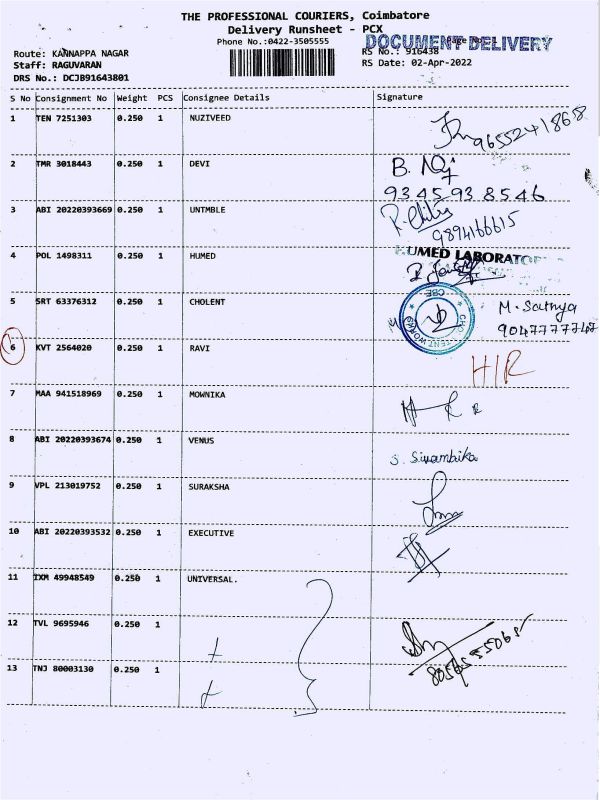 THE PROFESSIONAL COURIERS, Coimbatore
Delivery Runsheet - PCX
Phone No.:0422-3505555
DOCUMENT DELIVERY
Route: KANNAPPA NAGAR
RS No.: 916438
Staff: RAGUVARAN
RS Date: 02-Apr-2022
DRS No.: DCJB91643801
S No Consignment No Weight PCS Consignee Details Signature
1 TEN 7251303 0.250 1 NUZIVEED
9655241868
2 TMR 3018443 0.250 1 DEVI
9345938546
3 ABI 20220393669 0.250 1 UNTMBLE
9894166615
4 POL 1498311 0.250 1 HUMED
HUMED LABORATOR
5 SRT 63376312 0.250 1 CHOLENT
M. Sathya
90477777747
6 KVT 2564020 0.250 1 RAVI
H/R
7 MAA 941518969 0.250 1 MOWNIKA
8 ABI 20220393674 0.250 1 VENUS
S. Sivambika
9 VPL 213019752 0.250 1 SURAKSHA
10 ABI 20220393532 0.250 1 EXECUTIVE
11 IXM 49948549 0.250 1 UNIVERSAL.
12 TVL 9695946 0.250 1
13 TNJ 80003130 0.250 1